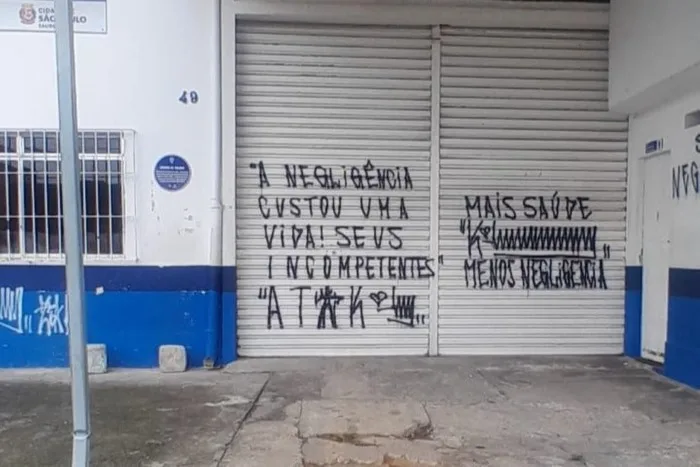 CIDADE DE
SÃO PAULO
SAÚDE
49
"A NEGLIGÊNCIA
CUSTOU UMA
VIDA! SEUS
INCOMPETENTES"
"AT
MAIS SAÚDE
MENOS NEGLIGENCIA
NEG